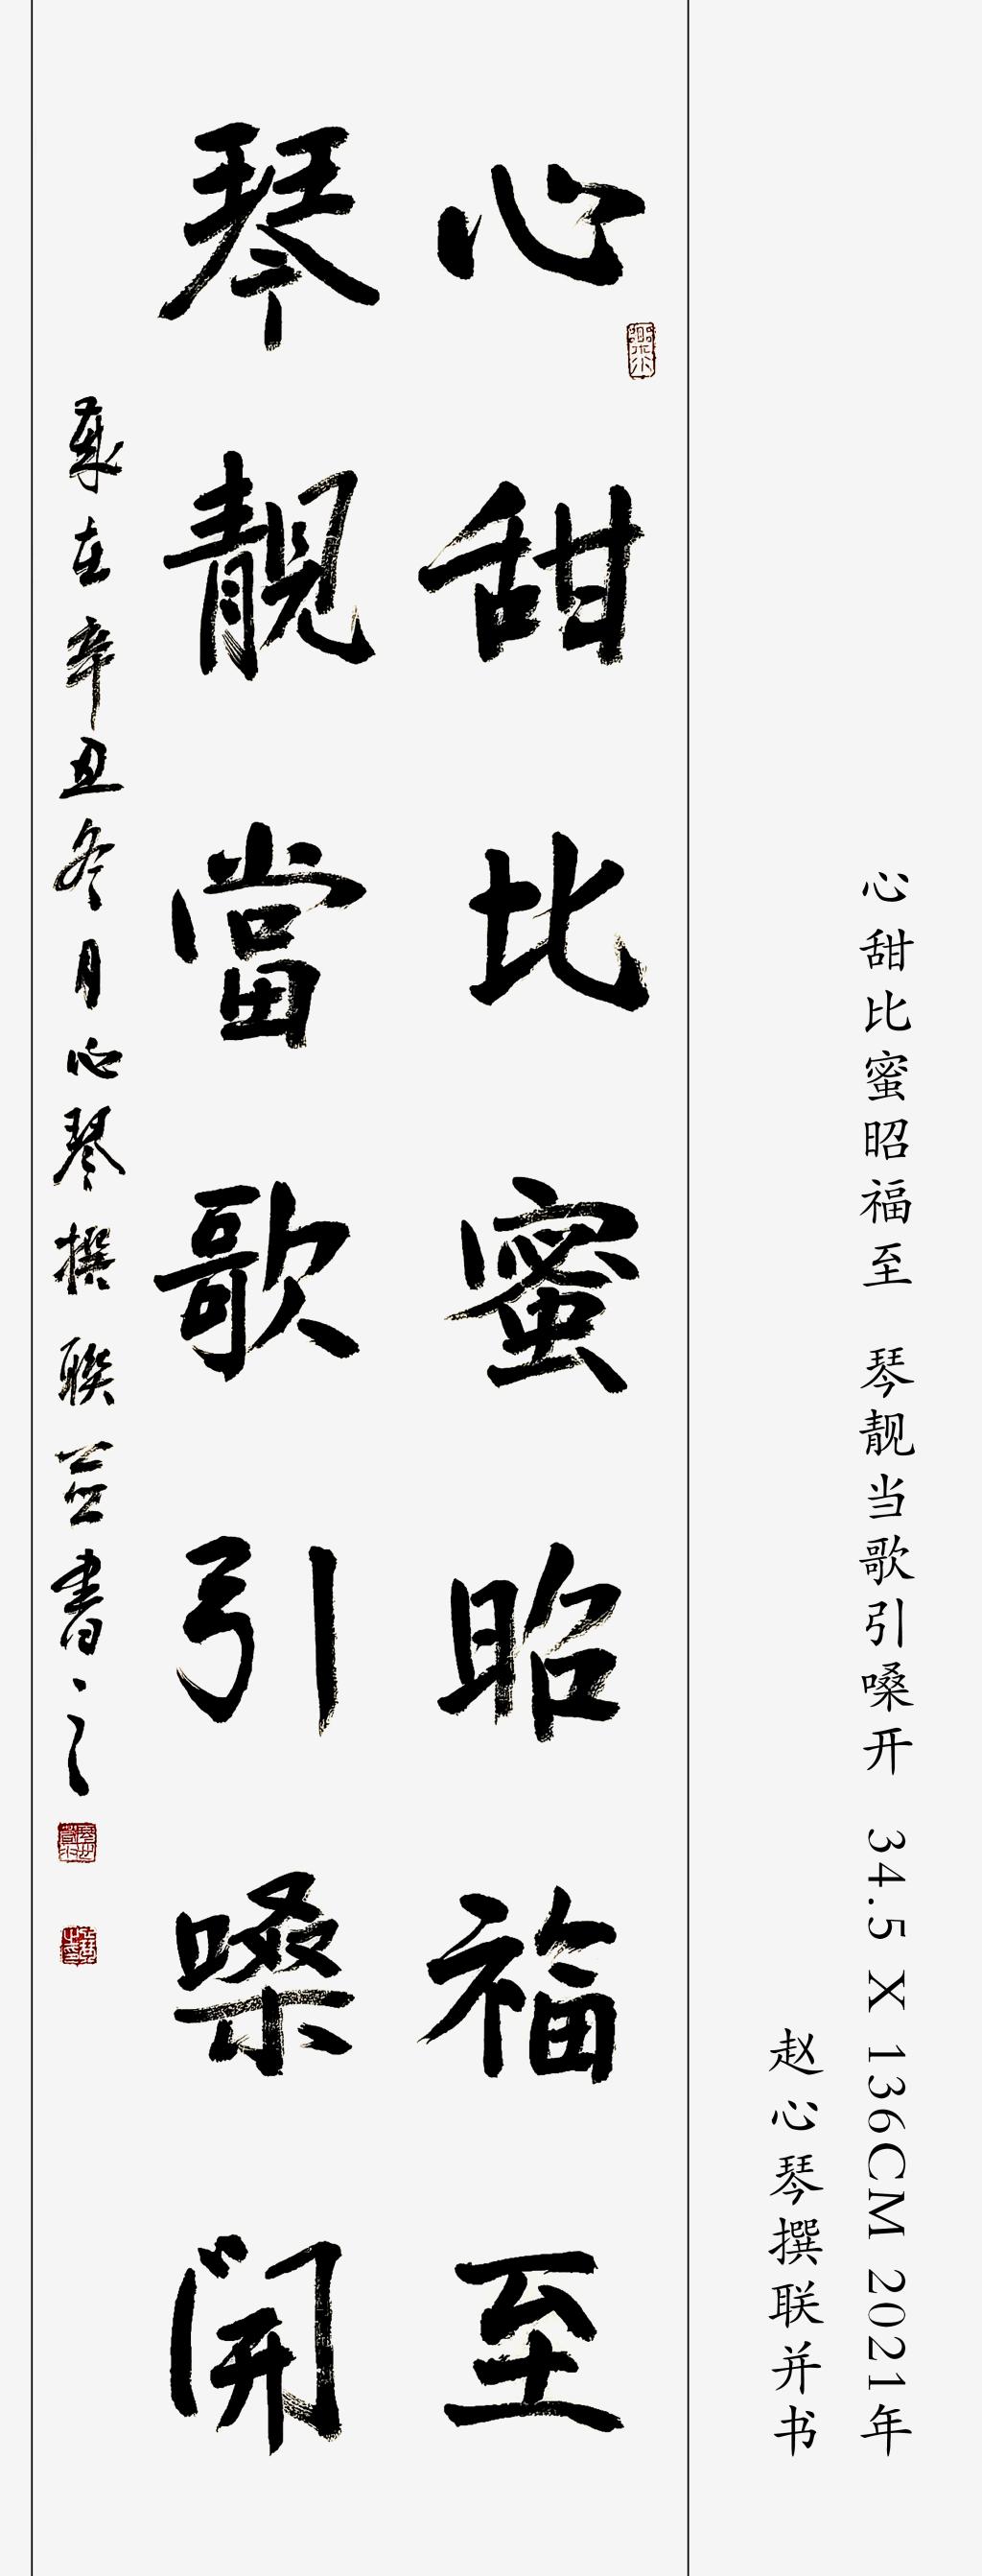 心甜比蜜昭福至 琴靓当歌引嗓开 34.5 X 136CM 2021年
赵心琴撰联并书
心甜比蜜昭福至
琴靚當歌引嗓開
歲在辛丑冬月心琴撰聯並書之